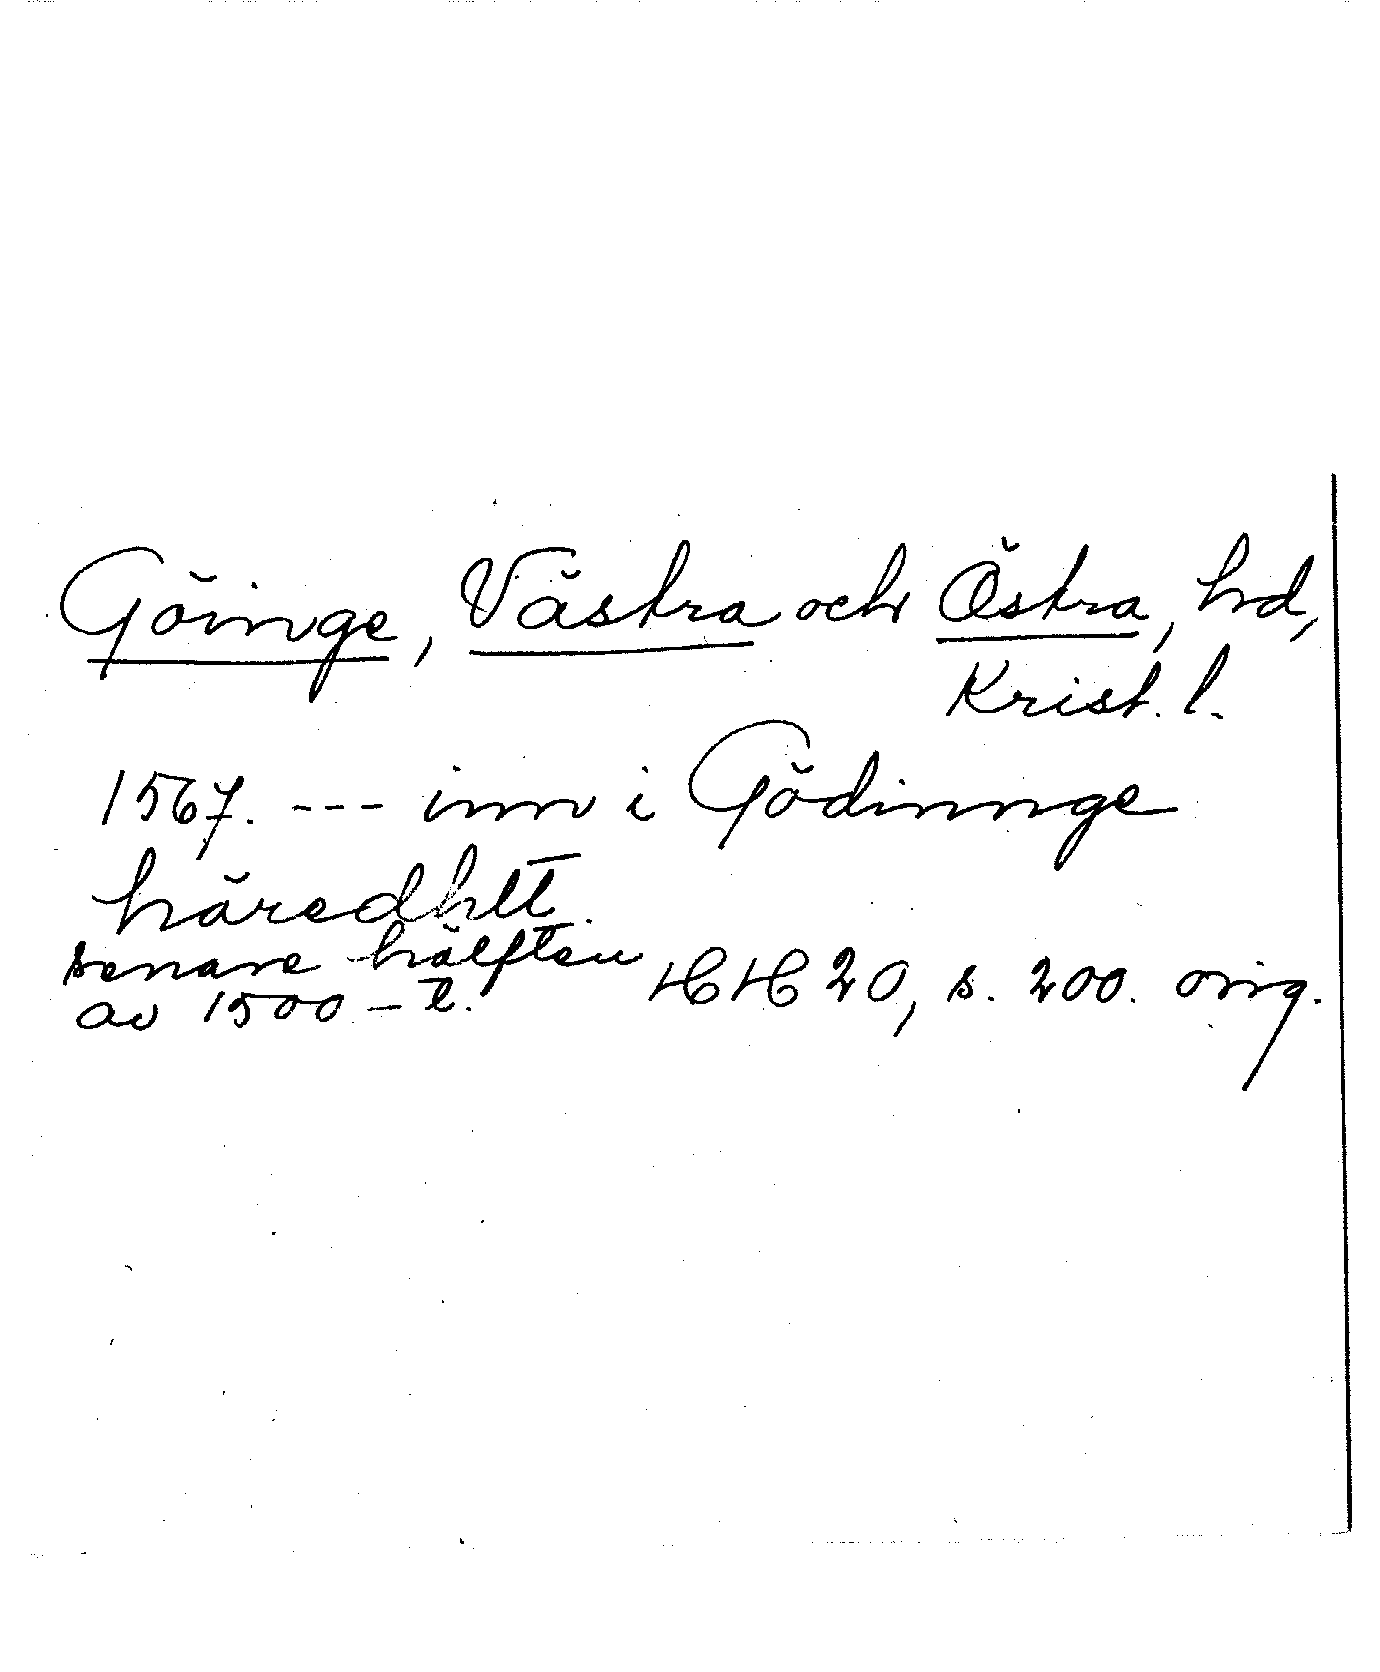 Göinge, Västra och Östra, hd,
Krist. l.
1567. --- inn i Gödinnge
häredhtt.
senare hälften
av 1500-t.
HH 20, s. 200. orig.